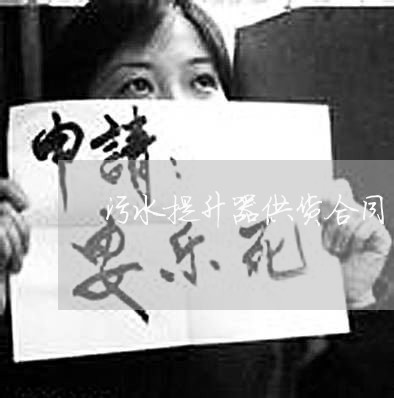 申請：
污水提升器供货合同
安乐死